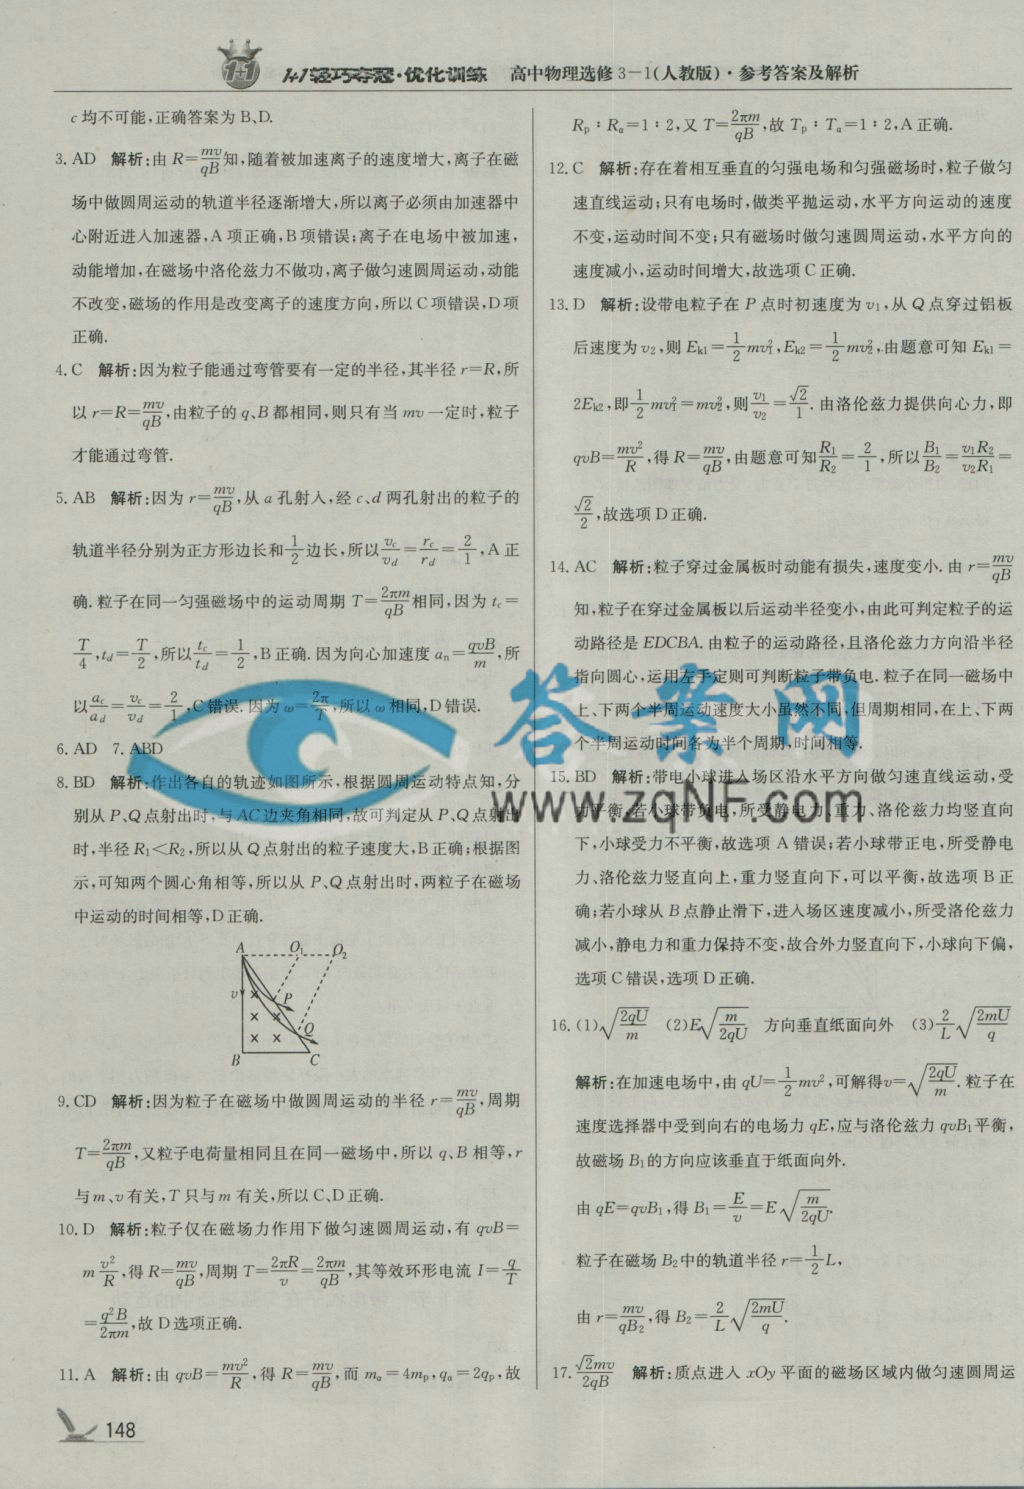 1+1轻巧夺冠·优化训练 高中物理选修3-1(人教版)·参考答案及解析
c均不可能,正确答案为B、D.
3. AD 解析:由R=mv/qB知,随着被加速离子的速度增大,离子在磁
场中做圆周运动的轨道半径逐渐增大,所以离子必须由加速器中
心附近进入加速器,A项正确,B项错误;离子在电场中被加速,
动能增加,在磁场中洛伦兹力不做功,离子做匀速圆周运动,动能
不改变,磁场的作用是改变离子的速度方向,所以C项错误,D项
正确.
4. C 解析:因为粒子能通过弯管要有一定的半径,其半径r=R,所
以r=R=mv/qB,由粒子的q、B都相同,则只有当mv一定时,粒子
才能通过弯管.
5. AB 解析:因为r=mv/qB,从a孔射入,经c、d两孔射出的粒子的
轨道半径分别为正方形边长和1/2边长,所以v_c/v_d=r_c/r_d=2/1,A正
确.粒子在同一匀强磁场中的运动周期T=2πm/qB相同,因为t_c=
T/4,t_d=T/2,所以t_c/t_d=1/2,B正确.因为向心加速度a_n=qvB/m,所
以a_c/a_d=v_c/v_d=2/1,C错误.因为ω=2π/T,所以ω相同,D错误.
6. AD 7. ABD
8. BD 解析:作出各自的轨迹如图所示,根据圆周运动特点知,分
别从P、Q点射出时,与AC边夹角相同,故可判定从P、Q点射出
时,半径R₁<R₂,所以从Q点射出的粒子速度大,B正确;根据图
示,可知两个圆心角相等,所以从P、Q点射出时,两粒子在磁场
中运动的时间相等,D正确.
A O₁ O₂
v P
Q
B C
9. CD 解析:因为粒子在磁场中做圆周运动的半径r=mv/qB,周期
T=2πm/qB,又粒子电荷量相同且在同一磁场中,所以q、B相等,r
与m、v有关,T只与m有关,所以C、D正确.
10. D 解析:粒子仅在磁场力作用下做匀速圆周运动,有qvB=
m v²/R,得R=mv/qB,周期T=2πR/v=2πm/qB,其等效环形电流I=q/T
=q²B/2πm,故D选项正确.
11. A 解析:由qvB=mv²/R,得R=mv/qB,而m_α=4m_p,q_α=2q_p,故
148
R_p∶R_α=1∶2,又T=2πm/qB,故T_p∶T_α=1∶2,A正确.
12. C 解析:存在着相互垂直的匀强电场和匀强磁场时,粒子做匀
速直线运动;只有电场时,做类平抛运动,水平方向运动的速度
不变,运动时间不变;只有磁场时做匀速圆周运动,水平方向的
速度减小,运动时间增大,故选项C正确.
13. D 解析:设带电粒子在P点时初速度为v₁,从Q点穿过铝板
后速度为v₂,则E_k1=1/2 mv₁²,E_k2=1/2 mv₂²,由题意可知E_k1=
2E_k2,即1/2 mv₁²=mv₂²,则v₁/v₂=√2/1.由洛伦兹力提供向心力,即
qvB=mv²/R,得R=mv/qB,由题意可知R₁/R₂=2/1,所以B₁/B₂=v₁R₂/v₂R₁=
√2/2,故选项D正确.
14. AC 解析:粒子穿过金属板时动能有损失,速度变小.由r=mv/qB
知,粒子在穿过金属板以后运动半径变小,由此可判定粒子的运
动路径是EDCBA.由粒子的运动路径,且洛伦兹力方向沿半径
指向圆心,运用左手定则可判断粒子带负电.粒子在同一磁场中
上、下两个半周运动速度大小虽然不同,但周期相同,在上、下两
个半周运动时间各为半个周期,时间相等.
15. BD 解析:带电小球进入场区沿水平方向做匀速直线运动,受
力平衡,若小球带负电,所受静电力、重力、洛伦兹力均竖直向
下,小球受力不平衡,故选项A错误;若小球带正电,所受静电
力、洛伦兹力竖直向上,重力竖直向下,可以平衡,故选项B正
确;若小球从B点静止滑下,进入场区速度减小,所受洛伦兹力
减小,静电力和重力保持不变,故合外力竖直向下,小球向下偏,
选项C错误,选项D正确.
16. (1)√(2qU/m) (2)E√(m/2qU) 方向垂直纸面向外 (3)2/L √(2mU/q)
解析:在加速电场中,由qU=1/2 mv²,可解得v=√(2qU/m).粒子在
速度选择器中受到向右的电场力qE,应与洛伦兹力qvB₁平衡,
故磁场B₁的方向应该垂直于纸面向外.
由qE=qvB₁,得B₁=E/v=E√(m/2qU).
粒子在磁场B₂中的轨道半径r=1/2 L,
由r=mv/qB₂,得B₂=2/L √(2mU/q).
17. √2mv/2qB 解析:质点进入xOy平面的磁场区域内做匀速圆周运
答案网
www.zqNF.com